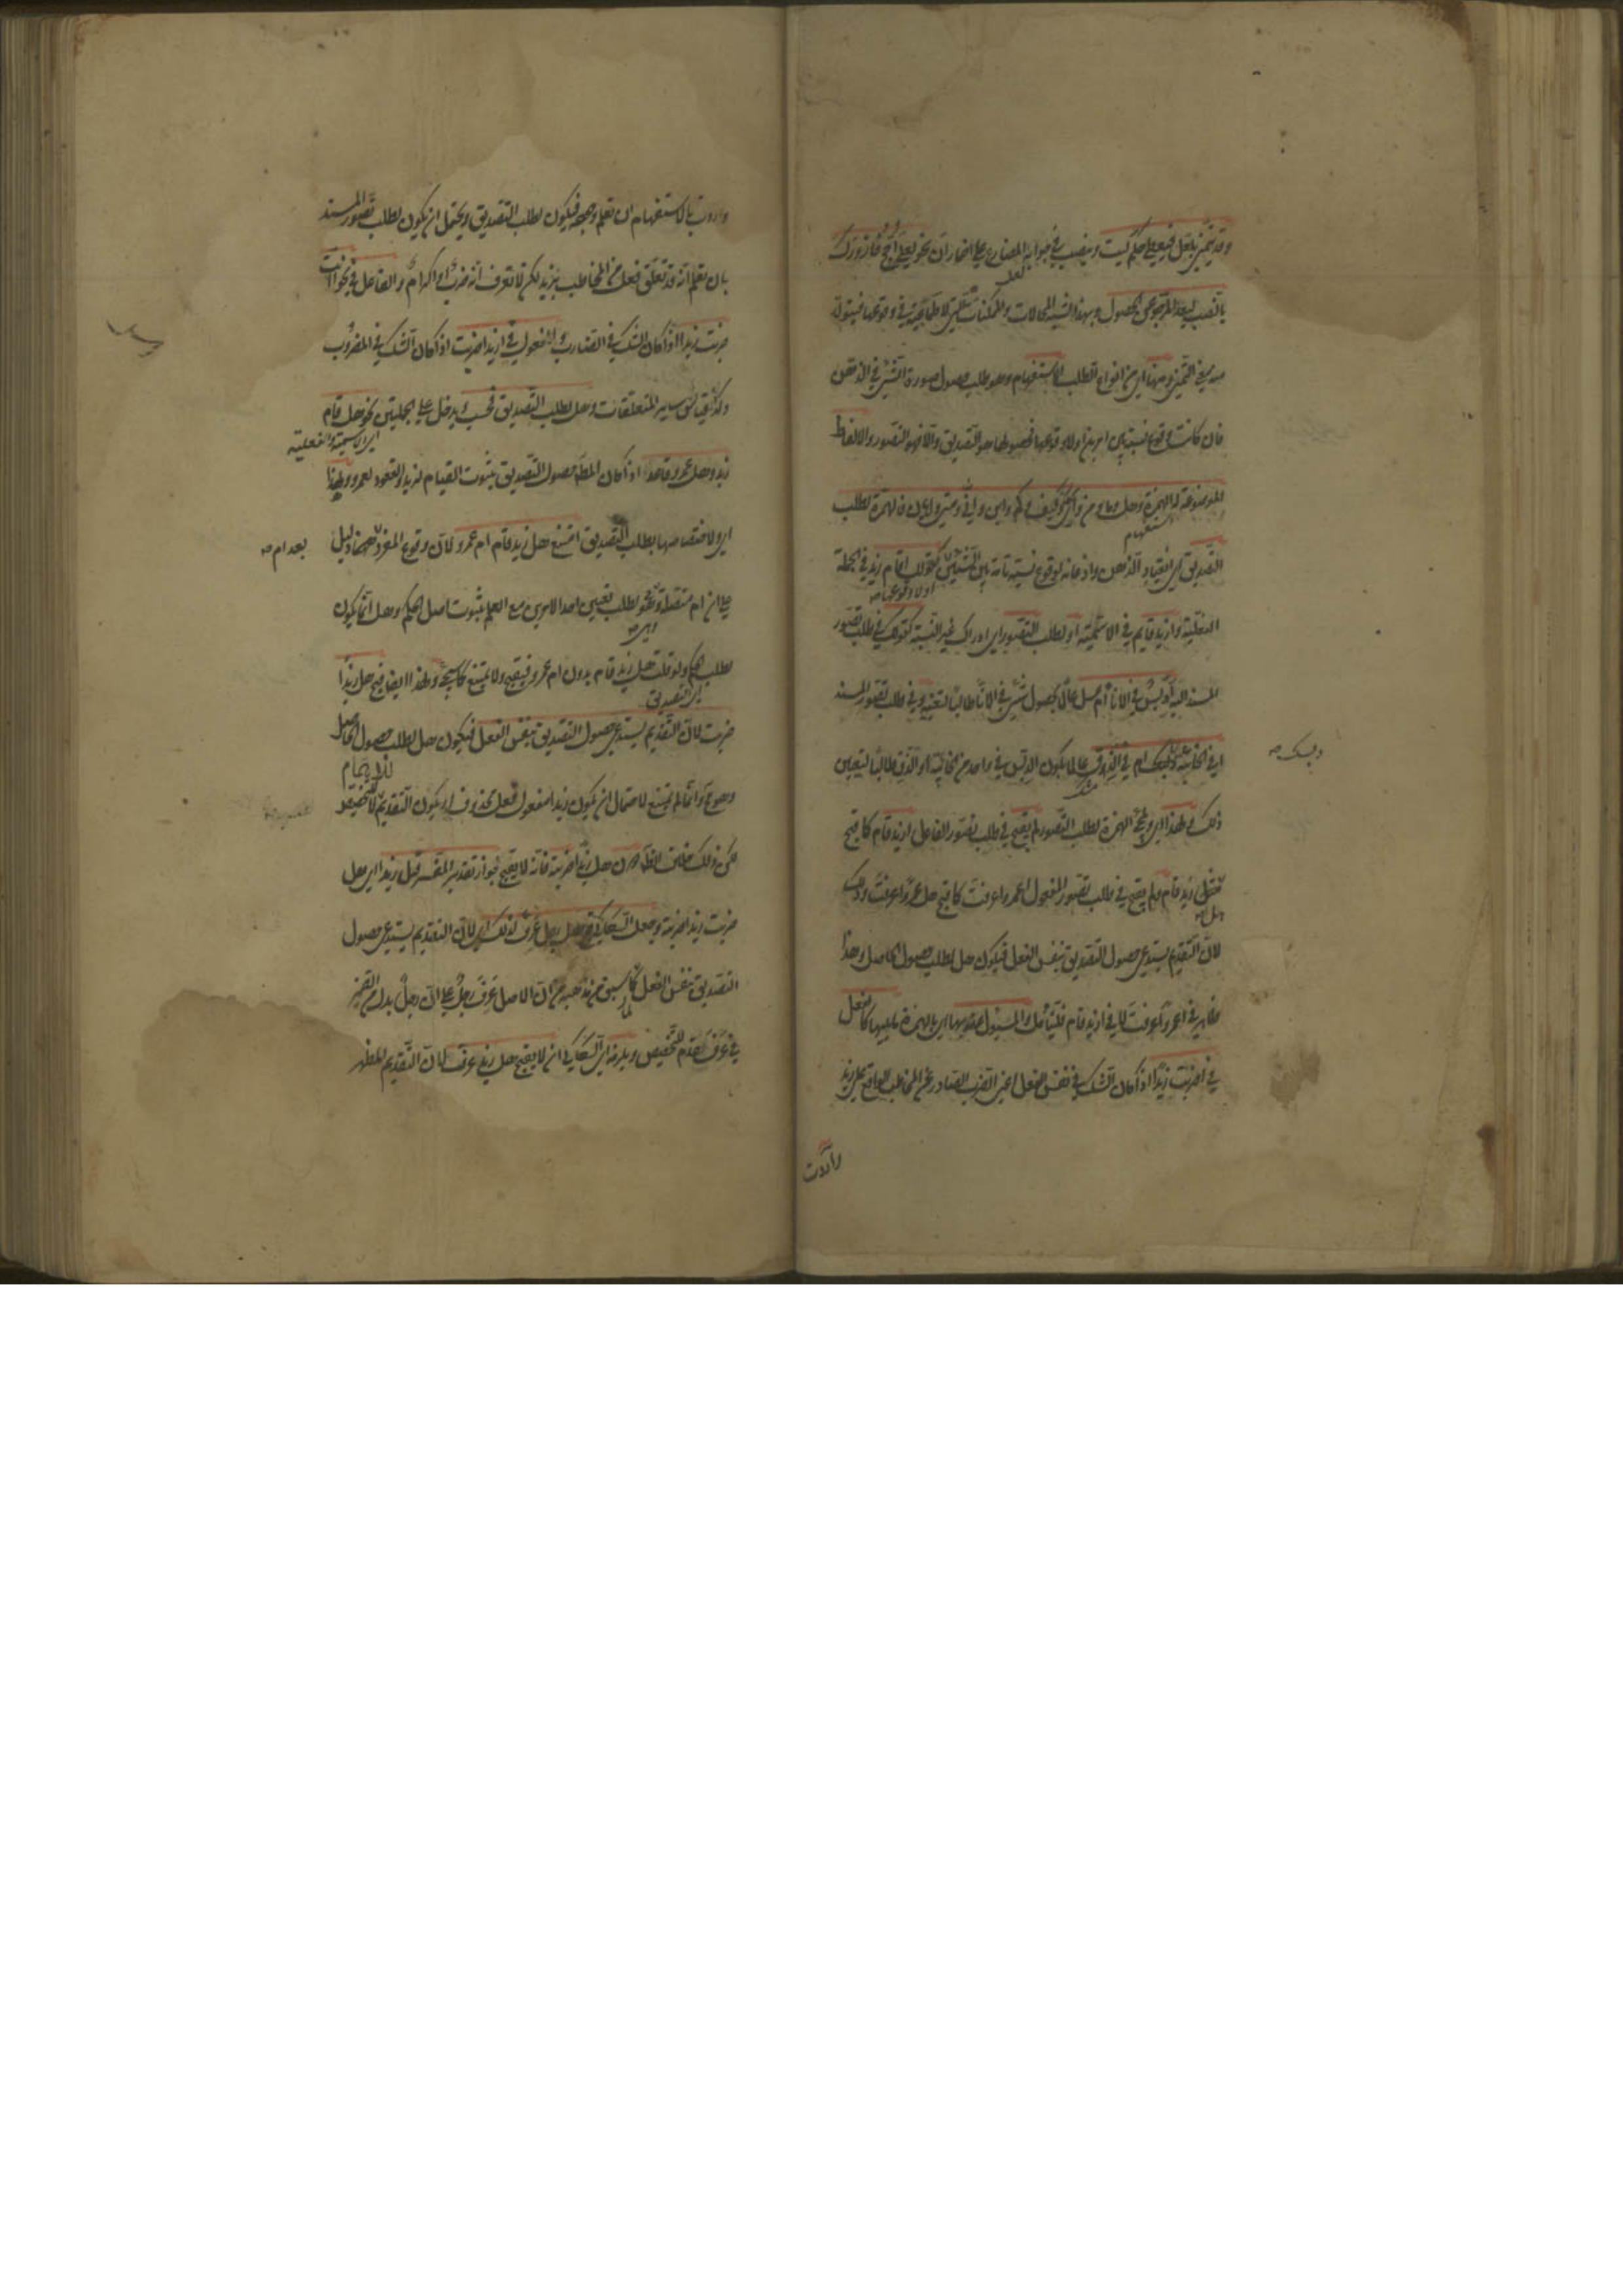 وقد يتمنى بلعل فيعطى حكم ليت وينصب في جوابه المضارع على اضمار ان نحو لعلى احج فازورك
بالنصب لبعد المرجو عن الحصول وبهذا يشبه المحالات والممكنات التي لا طماعية في وقوعها فيتولد
منه معنى التمني ومنها اي من انواع الطلب الاستفهام وهو طلب حصول صورة الشئ في الذهن
فان كانت وقوع نسبة بين امرين اولا وقوعها فحصولها هو التصديق والا فهو التصور والالفاظ
الموضوعة له الهمزة وهل وما ومن واي وكيف وكم واين وانى ومتى وايان فالهمزة لطلب
التصديق اي انقياد الذهن واذعانه لوقوع نسبة تامة بين الشيئين كقولك اقام زيد في الجملة
اولا وقوعها صح
الفعلية وازيد قايم في الاسمية او لطلب التصور اي ادراك غير النسبة كقولك في طلب تصور
المسند اليه ادبس في الاناء ام عسل عالما بحصول شئ في الاناء طالبا لتعيينه وفي طلب تصور المسند
افي الخابية دبسك ام في الزق عالما بكون الدبس في واحد من الخابية او الزق طالبا لتعيين
دبسك صح
ذلك ولهذا اي ولمجئ الهمزة لطلب التصور لم يقبح في طلب تصور الفاعل ازيد قام كما قبح
هل زيد قام ولم يقبح في طلب تصور المفعول اعمروا عرفت كما قبح هل عمروا عرفت وذلك
لان التقديم يستدعي حصول التصديق بنفس الفعل فيكون هل لطلب حصول الحاصل وهذا
ظاهر في اعمروا عرفت لا في ازيد قام فليتأمل والمسئول عنه بها اي بالهمزة ما يليها كالفعل
في اضربت زيدا اذا كان الشك في نفس الفعل اعني الضرب الصادر عن المخاطب الواقع على زيد
واردت
واردت بالاستفهام ان تعلم وجوده فيكون لطلب التصديق ويحتمل ان يكون لطلب تصور المسند
بان تعلم انه قد تعلق فعل من المخاطب بزيد لكن لا تعرف انه ضرب او اكرام والفاعل في نحو اانت
ضربت زيدا اذا كان الشك في الضارب والمفعول في ازيدا ضربت اذا كان الشك في المضروب
وكذا قياس ساير المتعلقات وهل لطلب التصديق فحسب ويدخل على الجملتين نحو هل قام
اي الاسمية والفعلية
زيد وهل عمرو قاعد اذا كان المط حصول التصديق بثبوت القيام لزيد والقعود لعمرو ولهذا
اي ولاختصاصها بطلب التصديق امتنع هل زيد قام ام عمرو لان وقوع المفرد ههنا دليل
بعد ام صح
على ان ام متصلة وهو لطلب تعيين احد الامرين مع العلم بثبوت اصل الحكم وهل انما يكون
لطلب الحكم ولو قلت هل زيد قام بدون ام عمرو فيقبح ولا يمتنع كما سيجئ ولهذا ايضا قبح هل زيدا
اي التصديق
ضربت لان التقديم يستدعي حصول التصديق بنفس الفعل فيكون هل لطلب حصول الحاصل
وهو مح وانما لم يمتنع لاحتمال ان يكون زيدا مفعول فعل محذوف او يكون التقديم لا للتخصيص
لكن ذلك خلاف الظاهر دون هل زيدا ضربته فانه لا يقبح لجواز تقدير المفسر قبل زيدا اي هل
ضربت زيدا ضربته وجعل السكاكي قبح هل رجل عرف لذلك اي لان التقديم يستدعي حصول
التصديق بنفس الفعل لما سبق من مذهبه من ان الاصل عرف رجل على ان رجل بدل من الضمير
في عرف قدم للتخصيص ويلزمه اي السكاكي ان لا يقبح هل زيد عرف لان التقديم المظهر